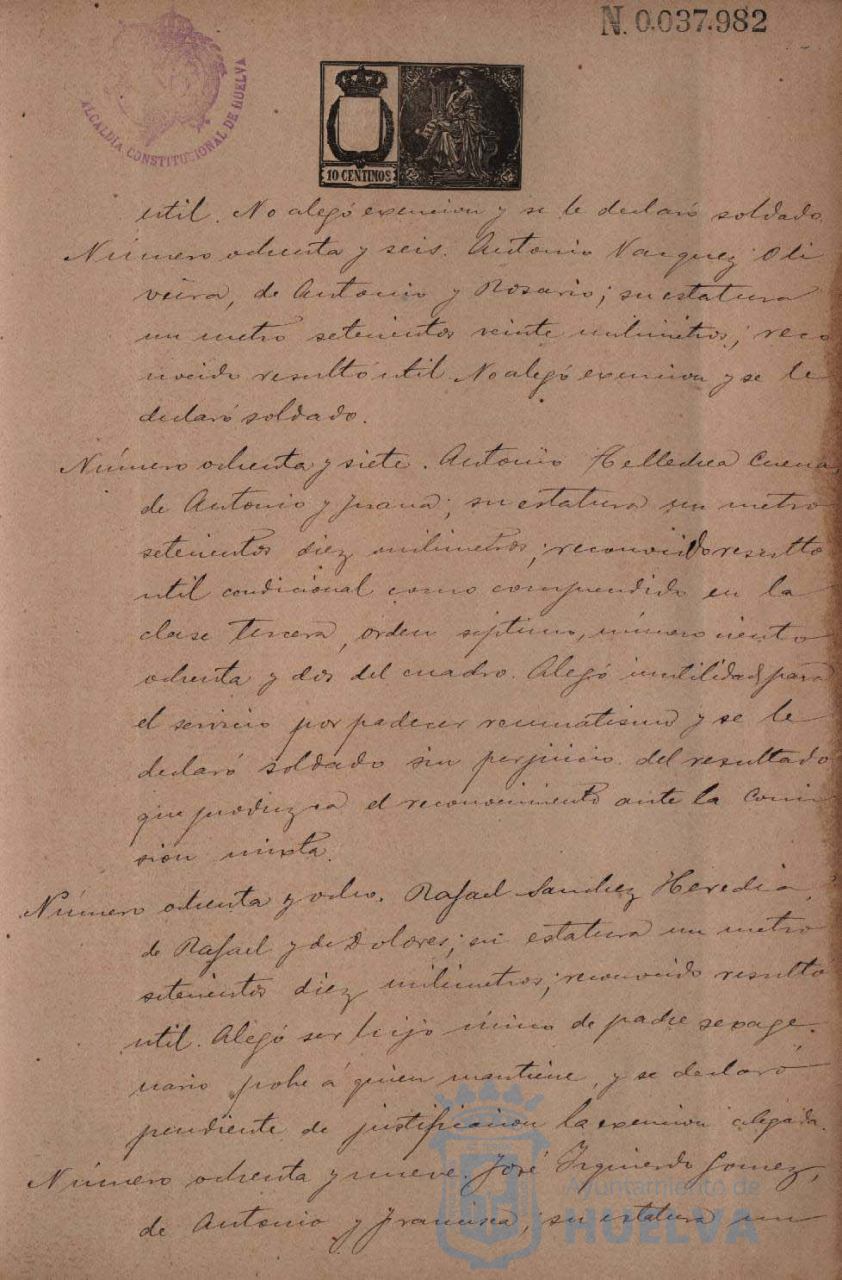 N. 0.037.982
ALCALDÍA CONSTITUCIONAL DE HUELVA
10 CENTIMOS
util. No alegó exencion y se le declaró soldado.
Número ochenta y seis. Antonio Vazquez Oli
veira, de Antonio y Rosario; su estatura
un metro setecientos veinte milimetros; reco
nocido resultó util. No alegó exencion y se le
declaró soldado.
Número ochenta y siete. Antonio Cuena,
de Antonio y Juana; su estatura un metro
setecientos diez milimetros; reconocido resultó
util condicional como comprendido en la
clase tercera, orden septimo, número ciento
ochenta y dos del cuadro. Alegó inutilidad para
el servicio por padecer reumatismo y se le
declaró soldado sin perjuicio del resultado
que produzca el reconocimiento ante la Comi
sion mixta.
Número ochenta y ocho. Rafael Sanchez Heredia,
de Rafael y de Dolores; su estatura un metro
setecientos diez milimetros; reconocido resultó
util. Alegó ser hijo único de padre sexage
nario pobre á quien mantiene, y se declaró
pendiente de justificacion la exencion alegada.
Número ochenta y nueve. José Izquierdo Gomez,
de Antonio y Francisca; su estatura un
Ayuntamiento de
HUELVA